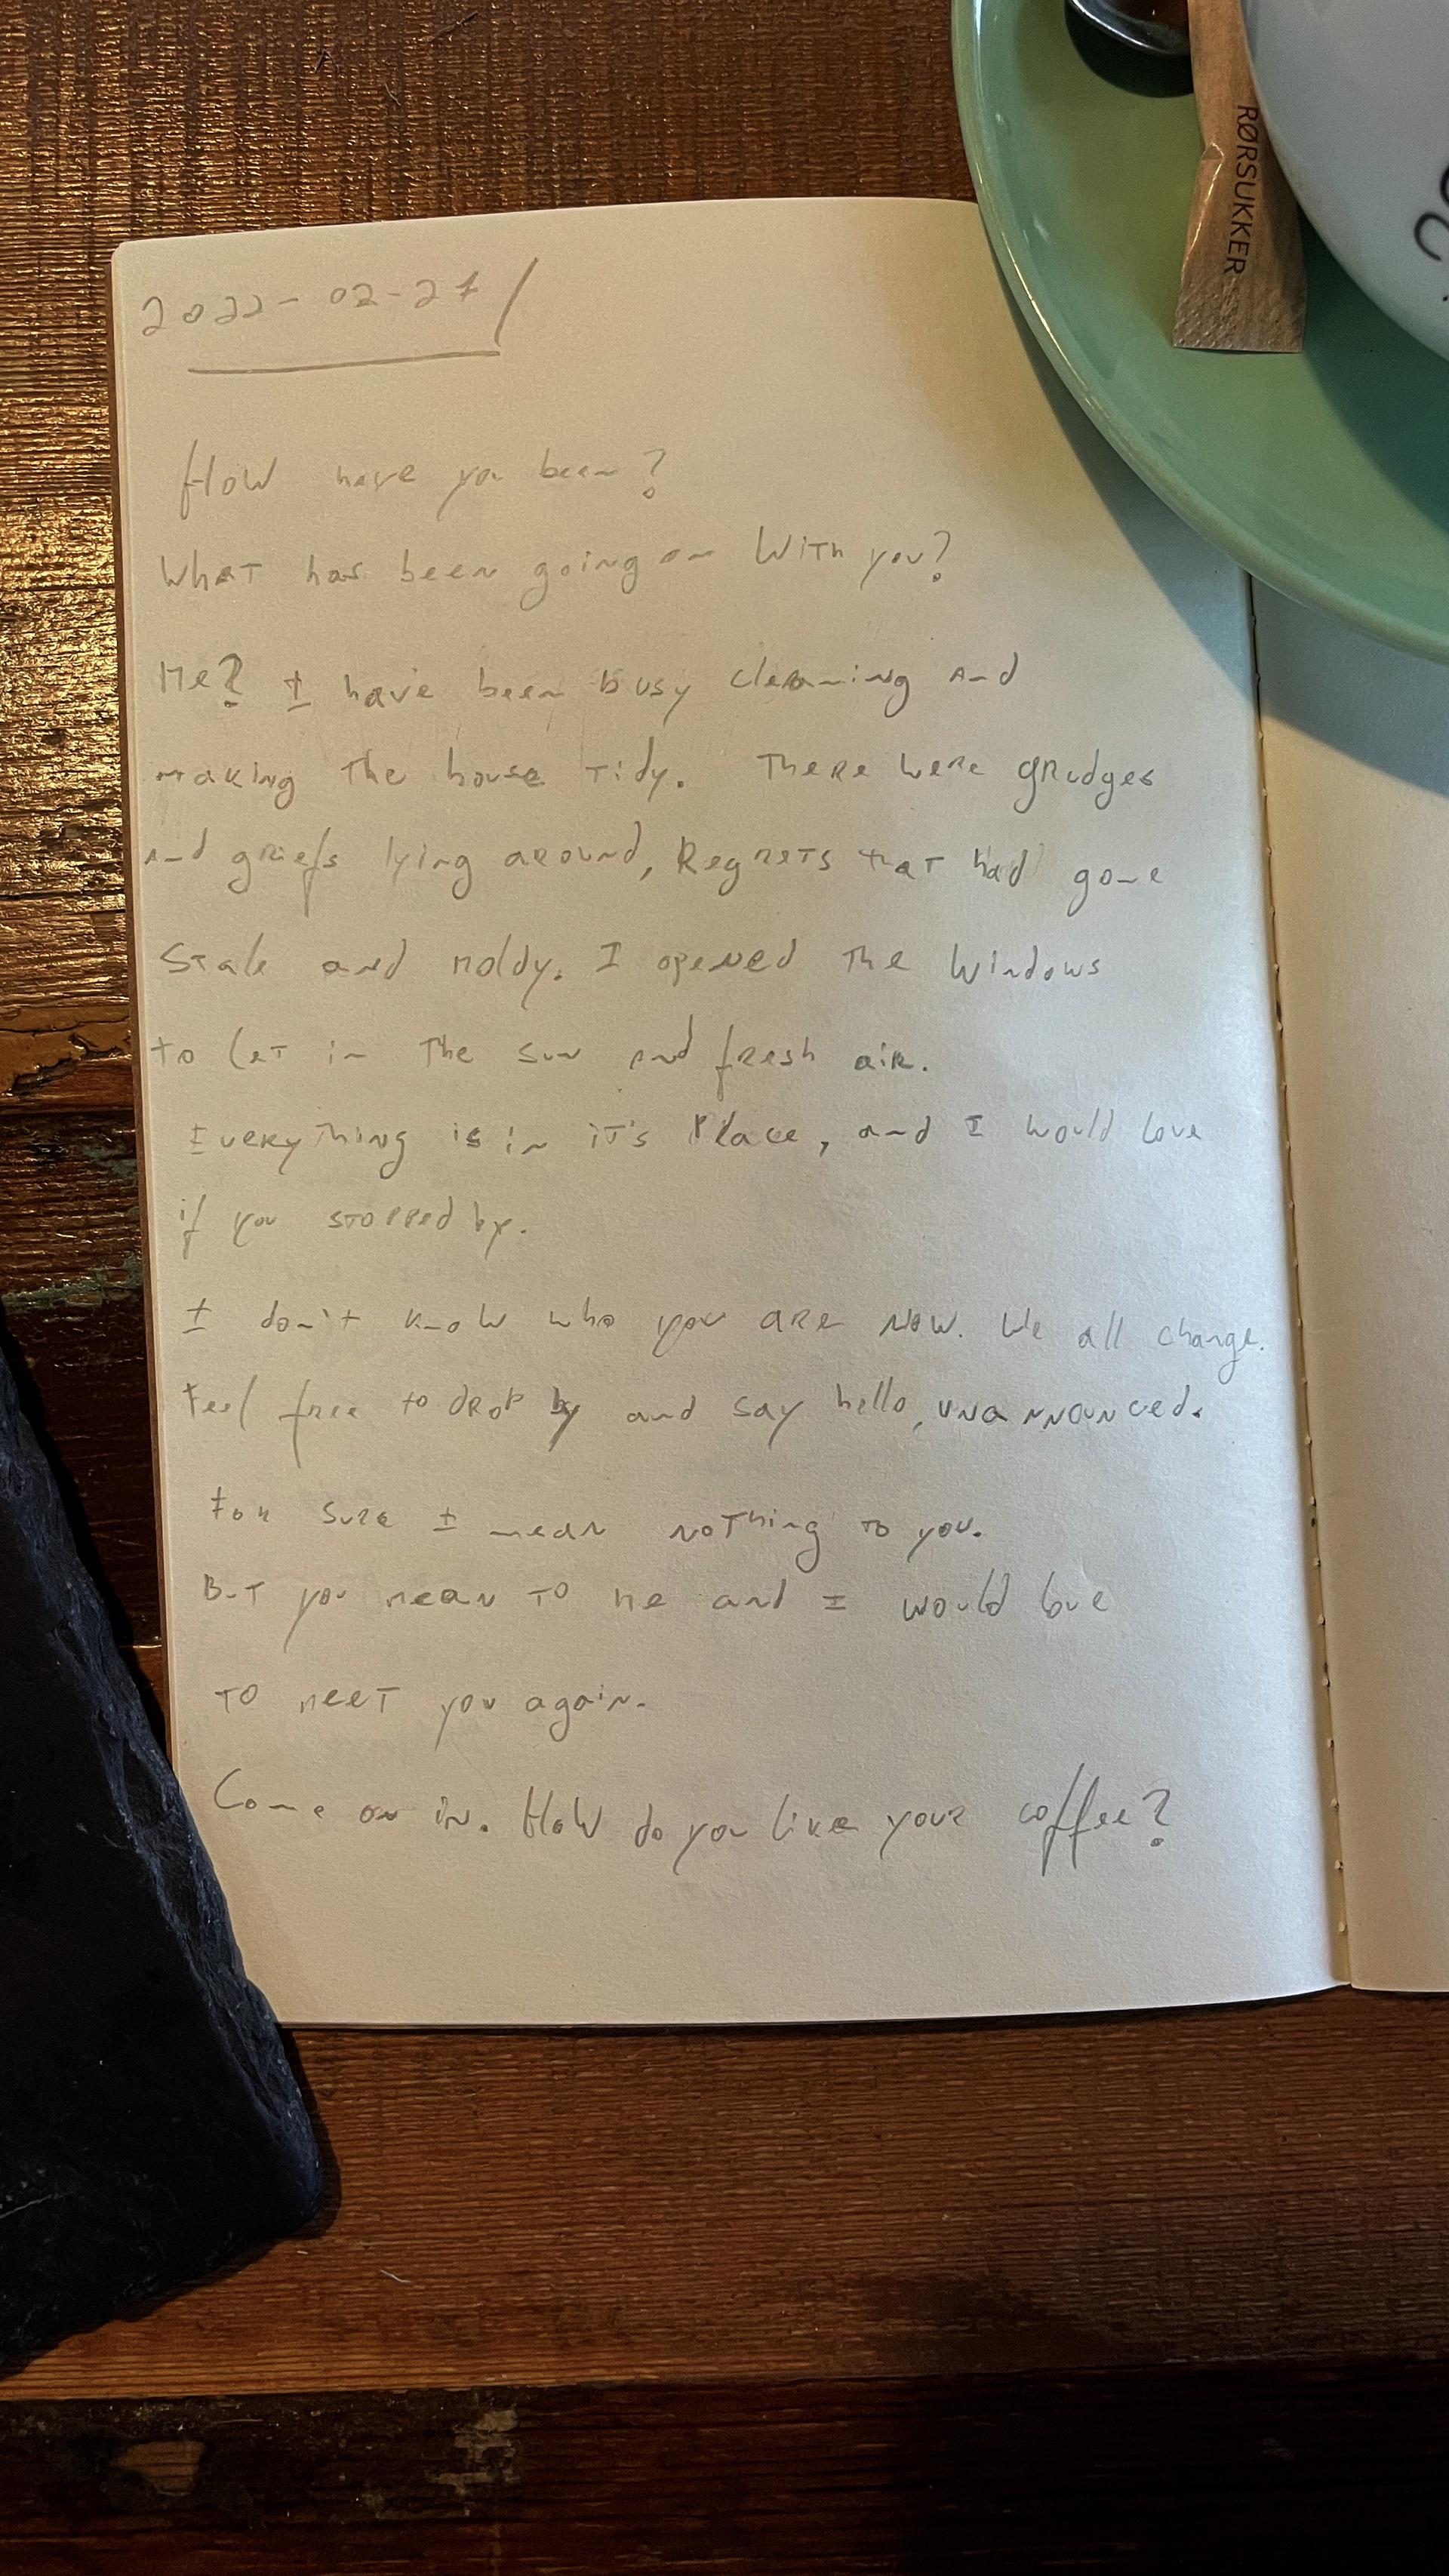 2022-02-27
How have you been?
What has been going on with you?
Me? I have been busy cleaning and
making the house tidy. There were grudges
and griefs lying around, Regrets that had gone
stale and moldy. I opened the windows
to let in the sun and fresh air.
Everything is in it's place, and I would love
if you stopped by.
I don't know who you are now. We all change.
Feel free to drop by and say hello, unannounced.
For sure I mean nothing to you.
But you mean to me and I would love
to meet you again.
Come on in. How do you like your coffee?
RØRSUKKER